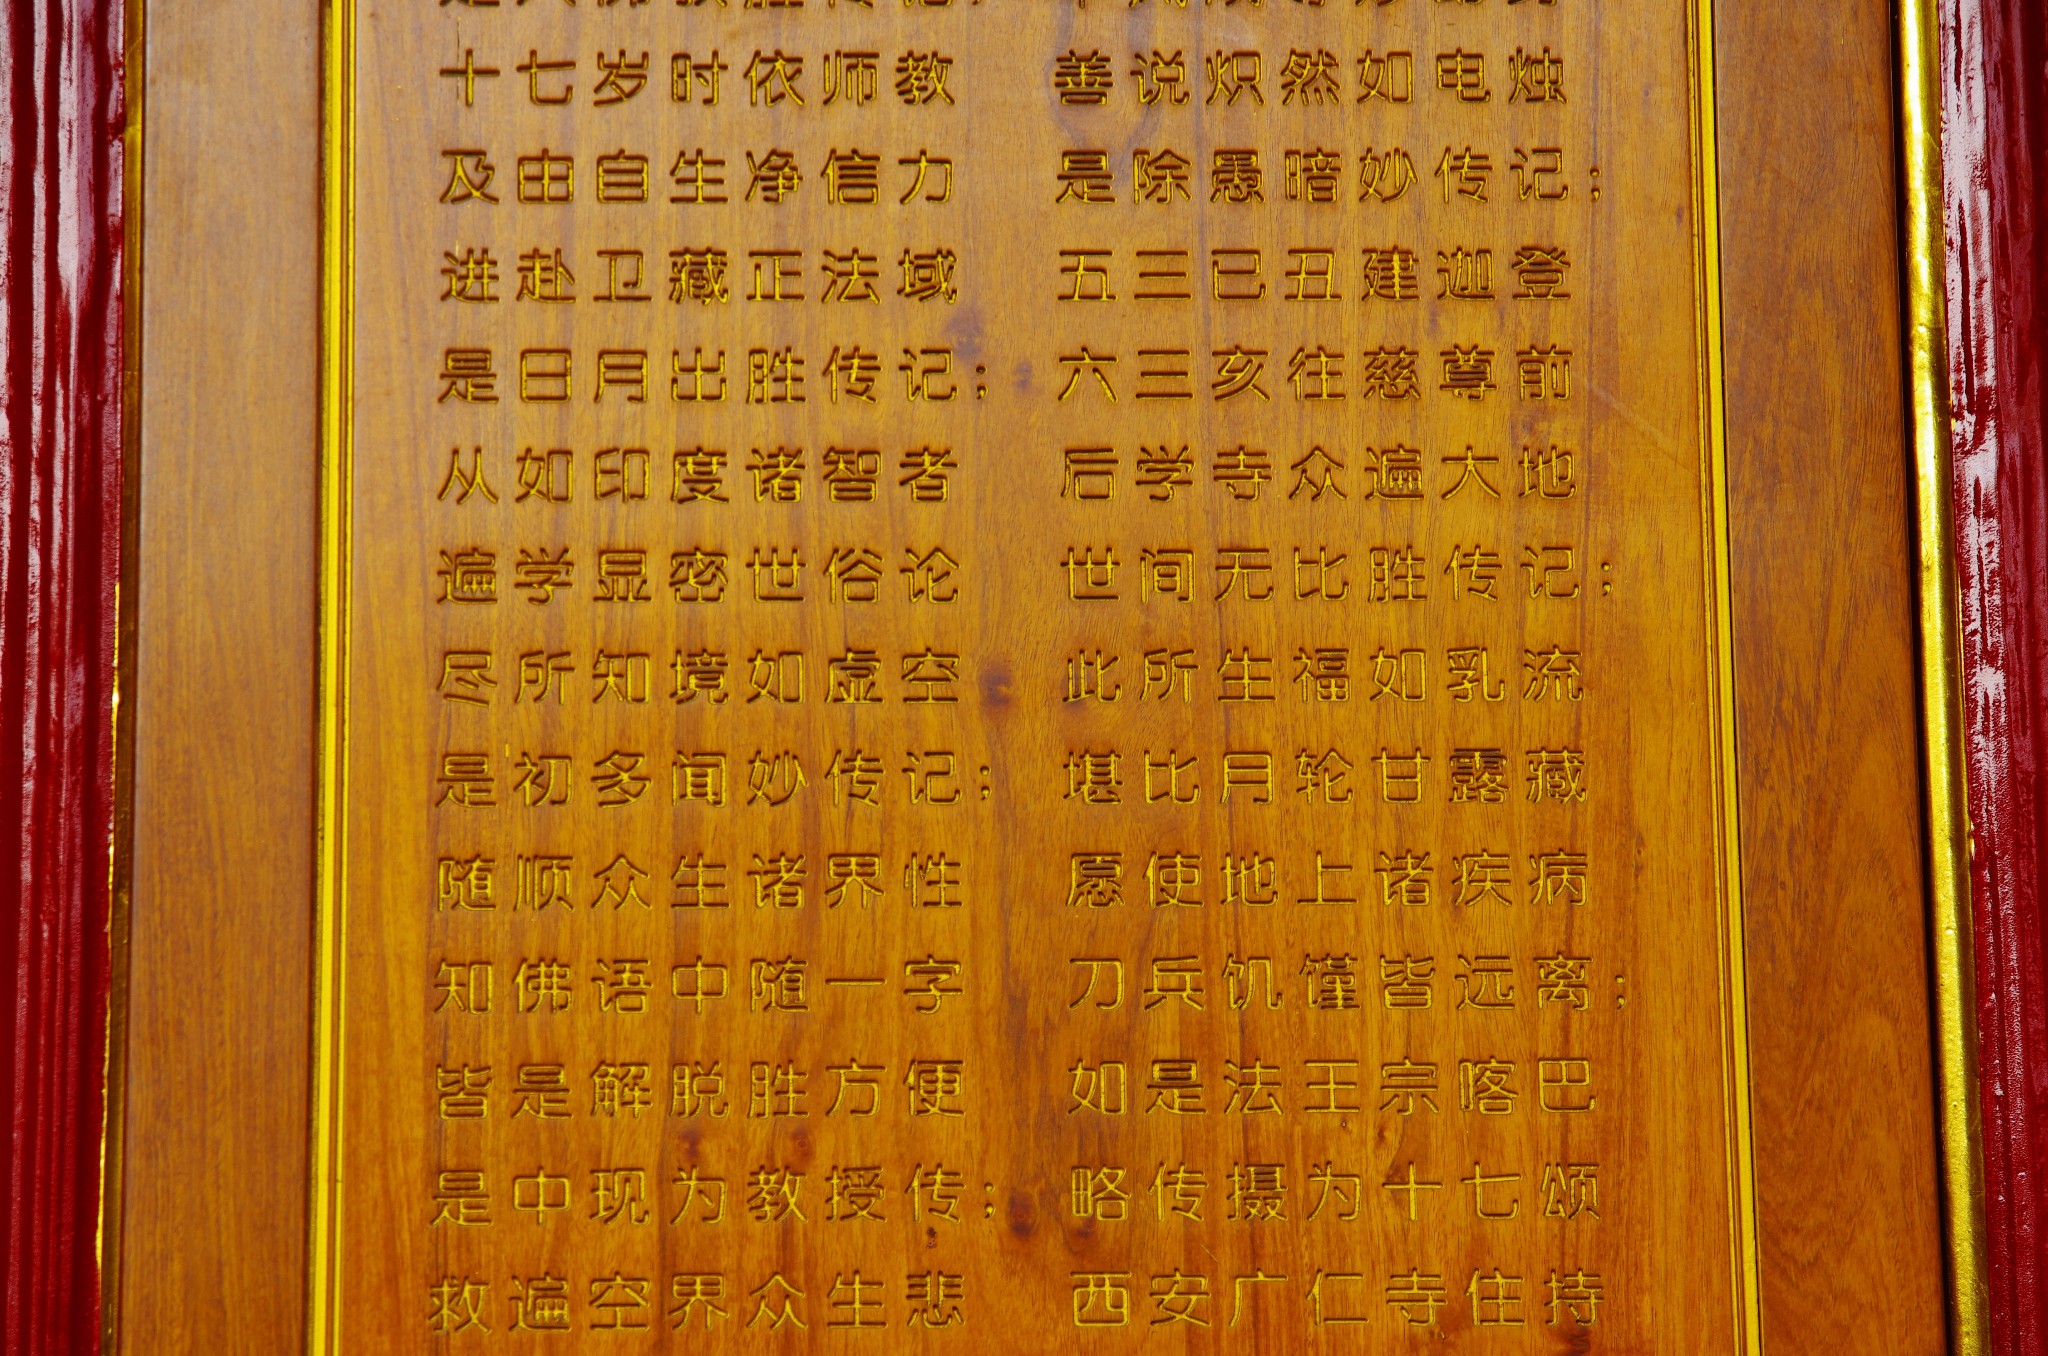 十七岁时依师教
及由自生净信力
进赴卫藏正法域
是日月出胜传记；
从如印度诸智者
遍学显密世俗论
尽所知境如虚空
是初多闻妙传记；
随顺众生诸界性
知佛语中随一字
皆是解脱胜方便
是中现为教授传；
救遍空界众生悲
善说炽然如电烛
是除愚暗妙传记；
五三已丑建迦登
六三亥往慈尊前
后学寺众遍大地
世间无比胜传记；
此所生福如乳流
堪比月轮甘露藏
愿使地上诸疾病
刀兵饥馑皆远离；
如是法王宗喀巴
略传摄为十七颂
西安广仁寺住持